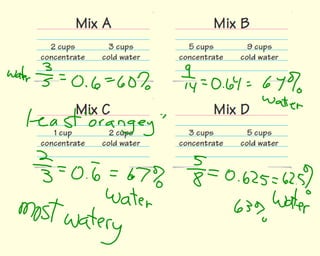 Mix A
2 cups concentrate
3 cups cold water
water 3/5 = 0.6 = 60%
Mix B
5 cups concentrate
9 cups cold water
9/14 = 0.64 = 64%
water
Least orangey
Mix C
1 cup concentrate
2 cups cold water
2/3 = 0.6̄ = 67%
water
most watery
Mix D
3 cups concentrate
5 cups cold water
5/8 = 0.625 = 62.5%
63% water